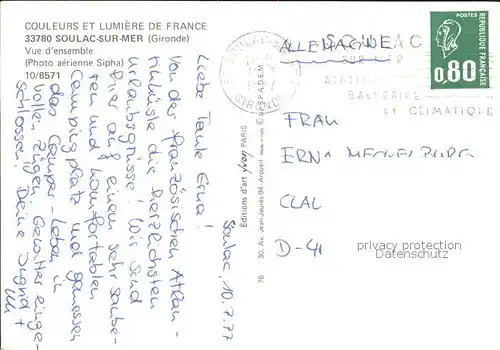 COULEURS ET LUMIÈRE DE FRANCE
33780 SOULAC-SUR-MER (Gironde)
Vue d'ensemble
(Photo aérienne Sipha)
10/8571
Soulac, 10.7.77
Liebe Tante Erna!
Von der französischen Atlan-
tikküste die herzlichsten
Urlaubsgrüsse! Wir sind
hier auf einem sehr saube-
ren und komfortablen
Campingplatz und geniessen
das Camper-Leben in
vollen Zügen. Gewitter einge-
schlossen. Deine Ingrid +
Éditions d'art yvon PARIS
30, Av. Jean-Jaurès-94-Arcueil
SPADEM
76
SOULAC
GIRONDE
SOULAC
SUR MER
STATION
BALNEAIRE
ET CLIMATIQUE
POSTES
0,80
REPUBLIQUE FRANÇAISE
ALLEMAGNE
FRAU
ERNA
D-41
privacy protection
Datenschutz